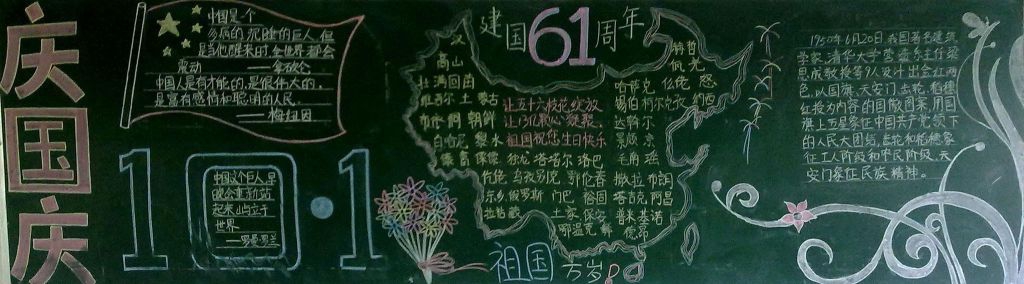 庆
国
庆
中国是个
多病的,沉睡的巨人,但
是当他醒来时,全世界都会
震动 ——拿破仑
中国人是有才能的,是很伟大的,
是富有感情和聪明的人民.
——梅纽因
10·1
中国这个巨人,早
晚会重新站
起来,屹立于
世界.
——罗曼·罗兰
建国61周年
汉
高山
壮 满 回 苗
维吾尔 土 蒙古
布依 侗 朝鲜
白 哈尼 黎 水
傣 畲 傈僳
仡佬 乌孜别克 鄂伦春
东乡 俄罗斯 门巴 裕固
拉祜 藏 土家 保安
鄂温克
让五十六枝花绽放
让13亿颗心凝聚、
祖国祝您生日快乐
独龙 塔塔尔 珞巴
赫哲
哈萨克 仫佬 怒
锡伯 柯尔克孜 纳西
达斡尔
景颇 京
毛南 瑶
撒拉 布朗
塔吉克 阿昌
普米 基诺
德昂
祖国 万岁!
1950年6月20日,我国著名建筑
学家、清华大学营建系主任梁
思成教授等9人设计出金红两
色,以国旗、天安门、齿轮、稻穗
红绶为内容的国徽图案.用国
旗上五星象征中国共产党领下
的人民大团结,齿轮和稻穗象
征工人阶级和农民阶级,天
安门象征民族精神。